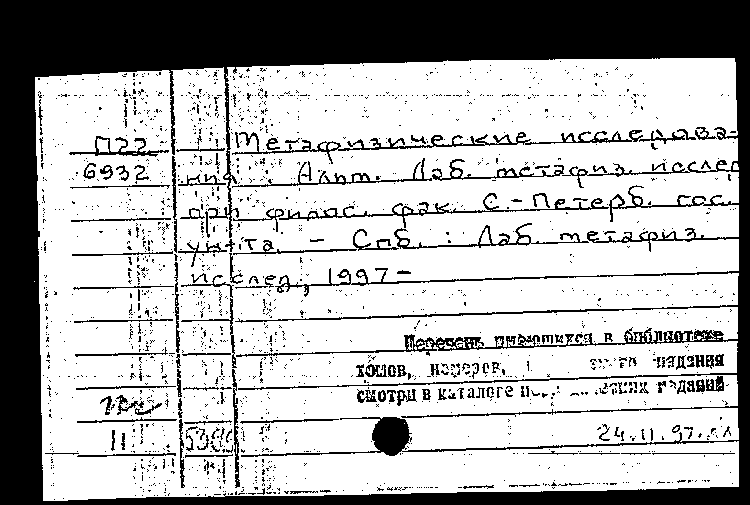 П22 Метафизические исследова-
6932 ния : Альм. Лаб. метафиз. исслед
при филос. фак. С.-Петерб. гос.
ун-та. - Спб. : Лаб. метафиз.
исслед, 1997-
Перечень имеющихся в библиотеке
томов, номеров, издания
смотри в каталоге изданий
11
24.11.97